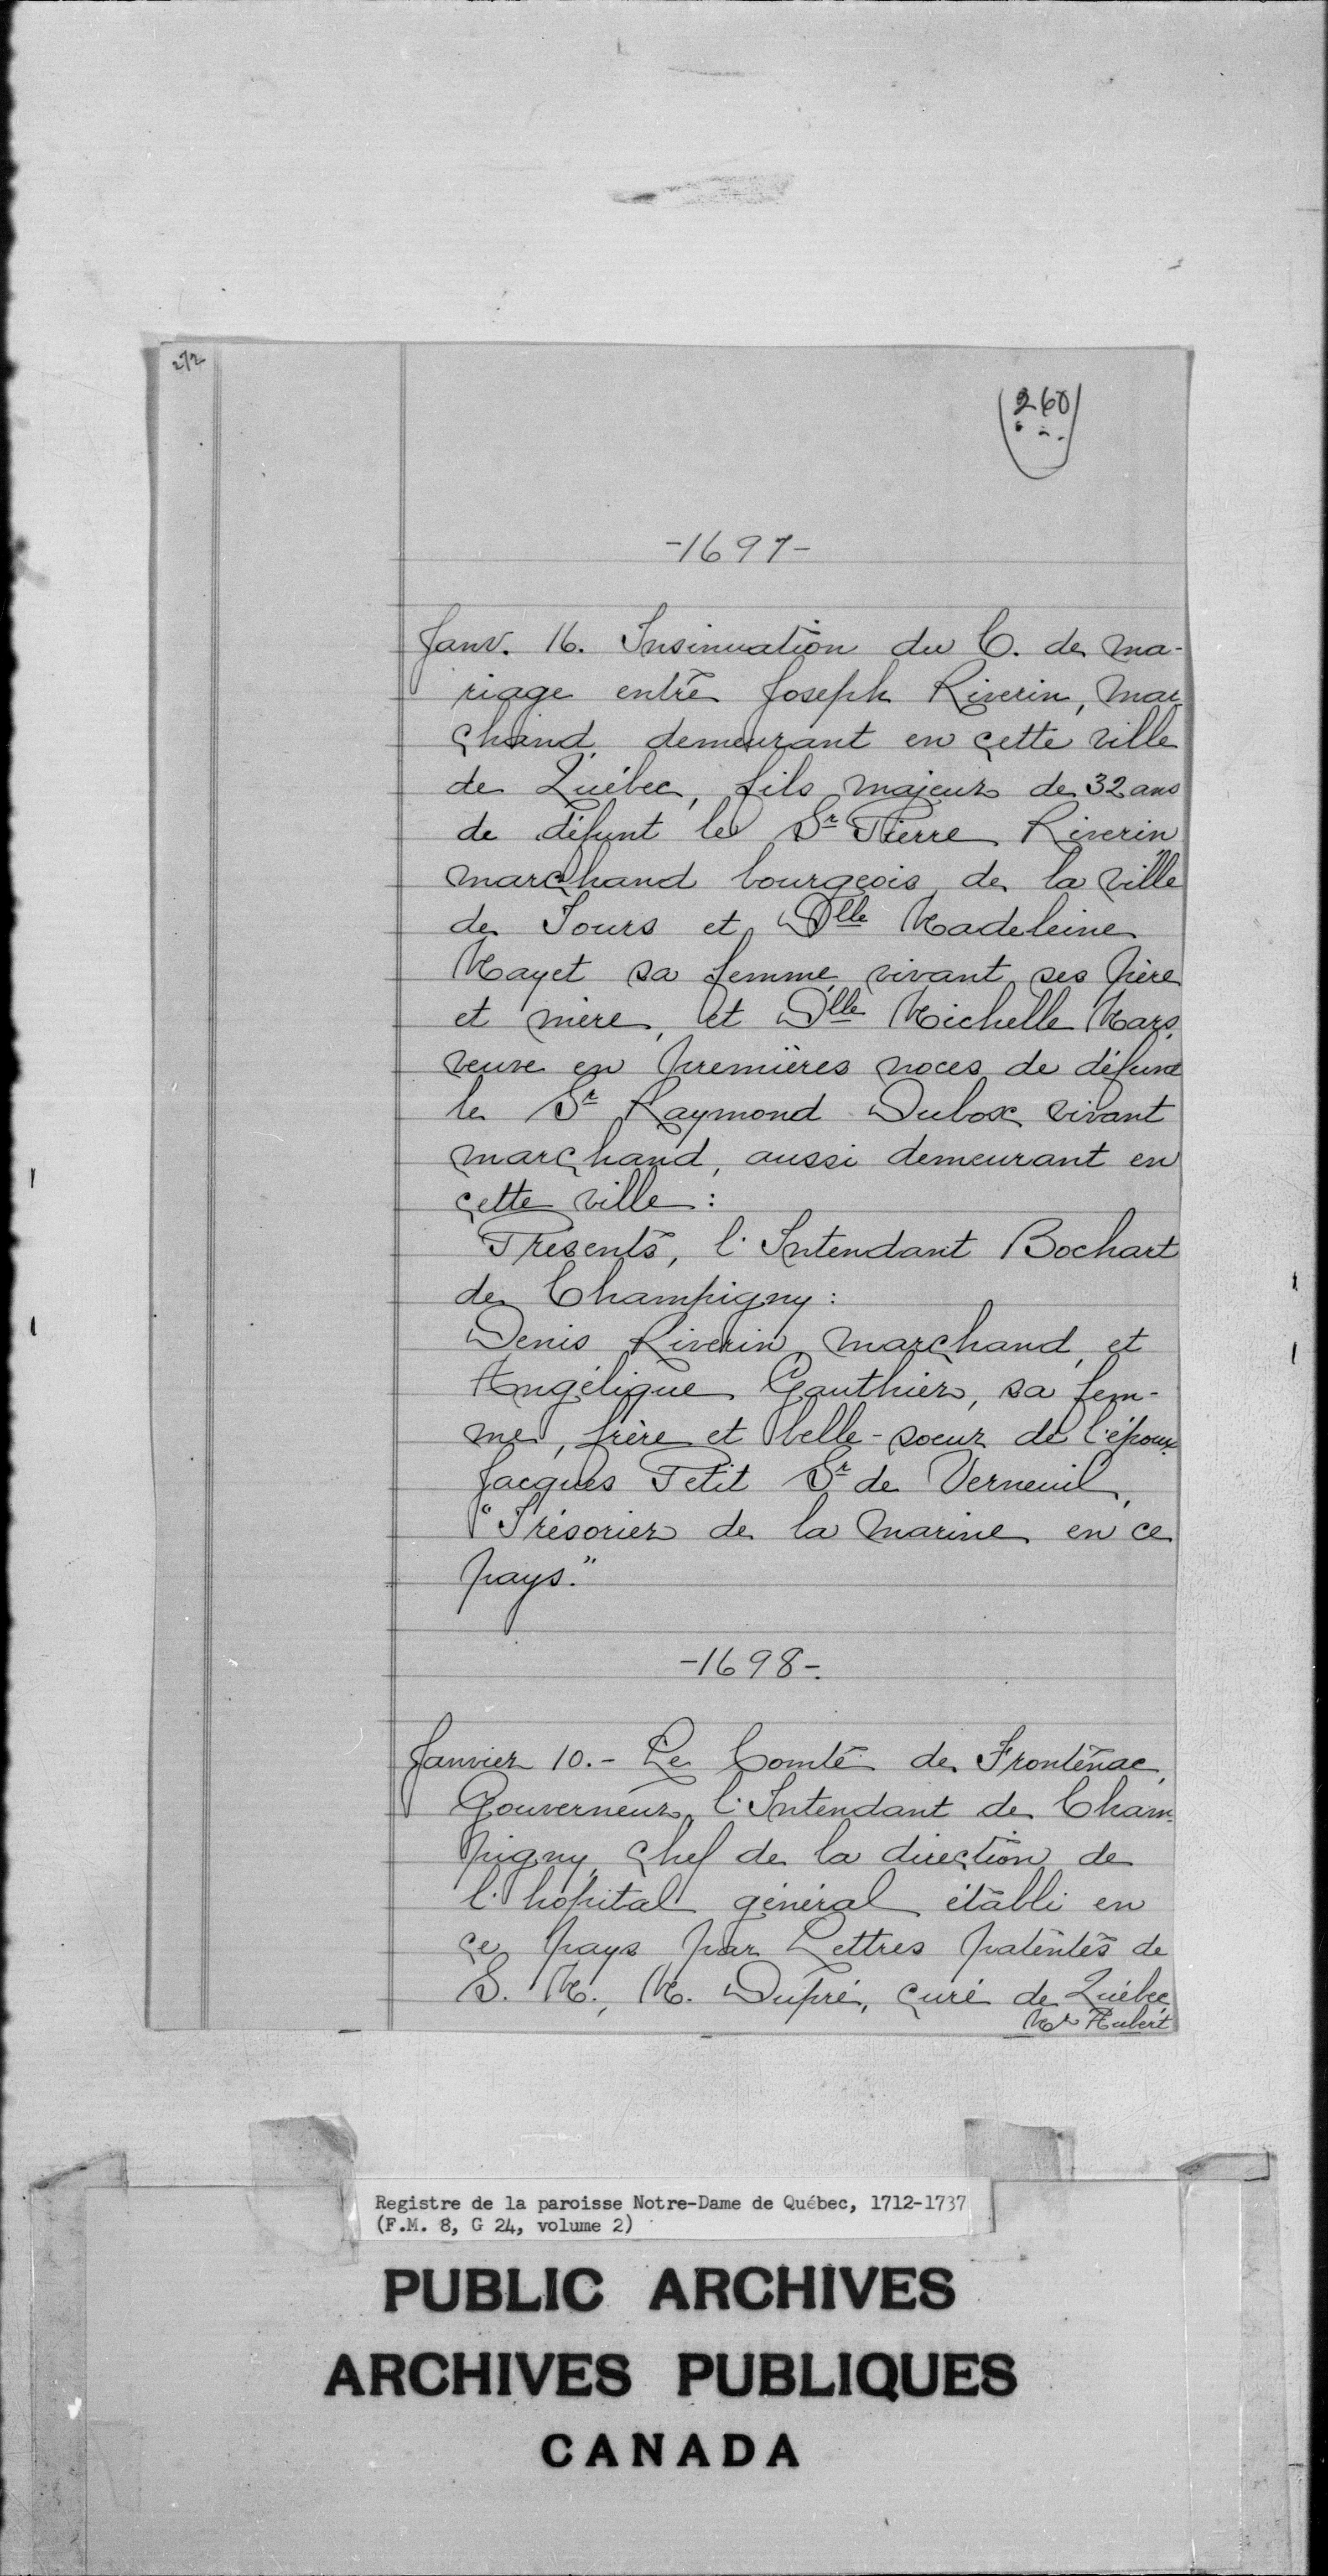 272
260
-1697-
Janv. 16. Insinuation du C. de ma-
riage entre Joseph Riverin, mar-
chand, demeurant en cette ville
de Québec, fils majeur de 32 ans
de défunt le Sr Pierre Riverin
marchand bourgeois de la ville
de Tours et Dlle Madeleine
Mayet sa femme, vivant ses père
et mère, et Dlle Michelle Mars
veuve en premières noces de défunt
le Sr Raymond Dubosc vivant
marchand, aussi demeurant en
cette ville :
Présents, l'Intendant Bochart
de Champigny :
Denis Riverin, marchand, et
Angélique Gauthier, sa fem-
me, frère et belle-soeur de l'époux.
Jacques Petit Sr de Verneuil,
"Trésorier de la marine en ce
pays."
-1698-.
Janvier 10.- Le Comte de Frontenac,
Gouverneur, l'Intendant de Cham-
pigny, chef de la direction de
l'hôpital général établi en
ce pays par Lettres patentes de
S. M., M. Dupré, curé de Québec,
Mr Hubert
Registre de la paroisse Notre-Dame de Québec, 1712-1737
(F.M. 8, G 24, volume 2)
PUBLIC ARCHIVES
ARCHIVES PUBLIQUES
CANADA